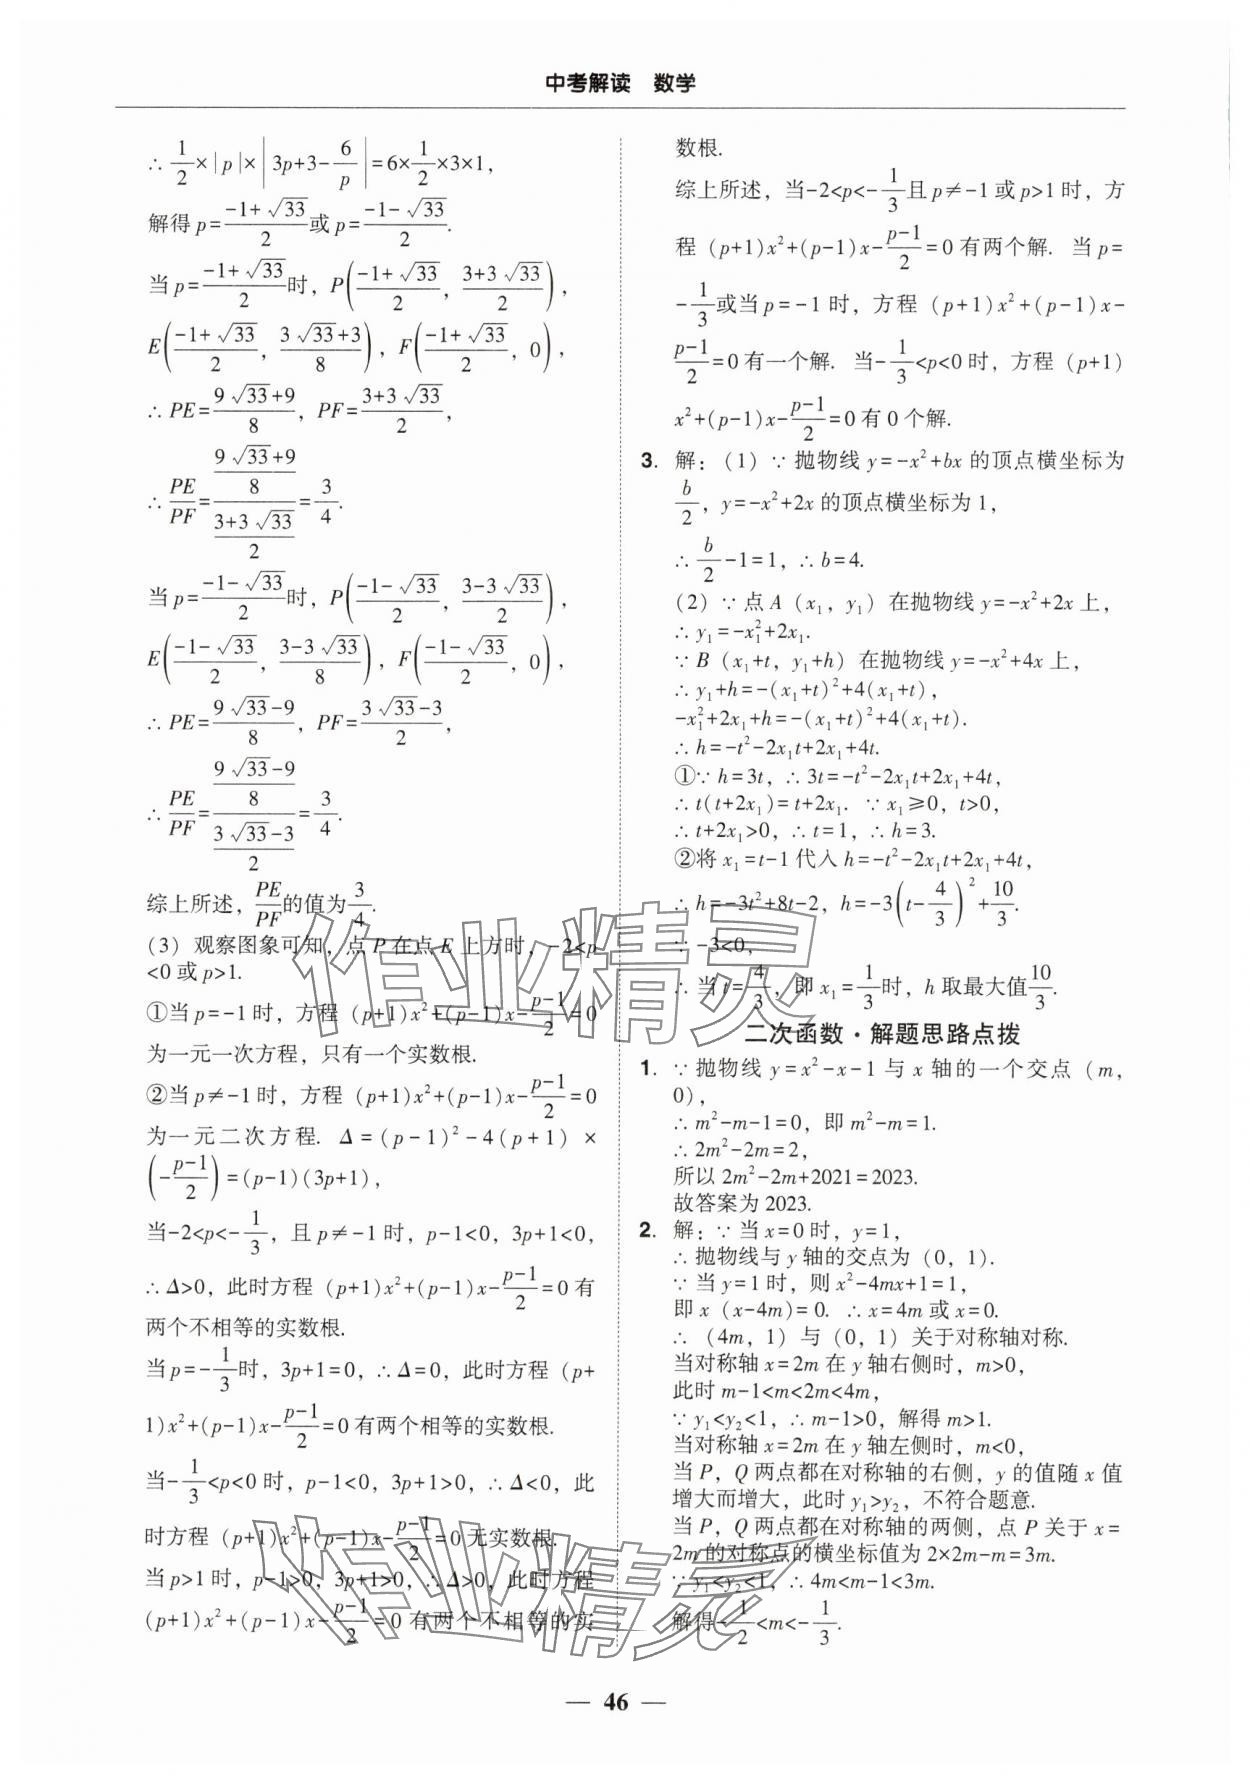 中考解读 数学
∴ 1/2×|p|×|3p+3-6/p|=6×1/2×3×1，
解得 p=(-1+√33)/2 或 p=(-1-√33)/2.
当 p=(-1+√33)/2 时，P((-1+√33)/2，(3+3√33)/2)，
E((-1+√33)/2，(3√33+3)/8)，F((-1+√33)/2，0)，
∴ PE=(9√33+9)/8，PF=(3+3√33)/2，
∴ PE/PF=((9√33+9)/8)/((3+3√33)/2)=3/4.
当 p=(-1-√33)/2 时，P((-1-√33)/2，(3-3√33)/2)，
E((-1-√33)/2，(3-3√33)/8)，F((-1-√33)/2，0)，
∴ PE=(9√33-9)/8，PF=(3√33-3)/2，
∴ PE/PF=((9√33-9)/8)/((3√33-3)/2)=3/4.
综上所述，PE/PF的值为3/4.
(3) 观察图象可知，点 P 在点 E 上方时，-2<p
<0 或 p>1.
①当 p=-1 时，方程 (p+1)x²+(p-1)x-(p-1)/2=0
为一元一次方程，只有一个实数根.
②当 p≠-1 时，方程 (p+1)x²+(p-1)x-(p-1)/2=0
为一元二次方程. Δ=(p-1)²-4(p+1)×
(-(p-1)/2)=(p-1)(3p+1)，
当-2<p<-1/3，且 p≠-1 时，p-1<0，3p+1<0，
∴ Δ>0，此时方程 (p+1)x²+(p-1)x-(p-1)/2=0 有
两个不相等的实数根.
当 p=-1/3时，3p+1=0，∴ Δ=0，此时方程 (p+
1)x²+(p-1)x-(p-1)/2=0 有两个相等的实数根.
当-1/3<p<0 时，p-1<0，3p+1>0，∴ Δ<0，此
时方程 (p+1)x²+(p-1)x-(p-1)/2=0 无实数根.
当 p>1 时，p-1>0，3p+1>0，∴ Δ>0，此时方程
(p+1)x²+(p-1)x-(p-1)/2=0 有两个不相等的实
数根.
综上所述，当-2<p<-1/3且 p≠-1 或 p>1 时，方
程 (p+1)x²+(p-1)x-(p-1)/2=0 有两个解. 当 p=
-1/3或当 p=-1 时，方程 (p+1)x²+(p-1)x-
(p-1)/2=0 有一个解. 当-1/3<p<0 时，方程 (p+1)
x²+(p-1)x-(p-1)/2=0 有 0 个解.
3. 解：(1) ∵ 抛物线 y=-x²+bx 的顶点横坐标为
b/2，y=-x²+2x 的顶点横坐标为 1，
∴ b/2-1=1，∴ b=4.
(2) ∵ 点 A (x₁，y₁) 在抛物线 y=-x²+2x 上，
∴ y₁=-x₁²+2x₁.
∵ B (x₁+t，y₁+h) 在抛物线 y=-x²+4x 上，
∴ y₁+h=-(x₁+t)²+4(x₁+t)，
-x₁²+2x₁+h=-(x₁+t)²+4(x₁+t).
∴ h=-t²-2x₁t+2x₁+4t.
①∵ h=3t，∴ 3t=-t²-2x₁t+2x₁+4t，
∴ t(t+2x₁)=t+2x₁. ∵ x₁≥0，t>0，
∴ t+2x₁>0，∴ t=1，∴ h=3.
②将 x₁=t-1 代入 h=-t²-2x₁t+2x₁+4t，
∴ h=-3t²+8t-2，h=-3(t-4/3)²+10/3.
∵ -3<0，
∴ 当 t=4/3，即 x₁=1/3时，h 取最大值10/3.
二次函数·解题思路点拨
1. ∵ 抛物线 y=x²-x-1 与 x 轴的一个交点 (m，
0)，
∴ m²-m-1=0，即 m²-m=1.
∴ 2m²-2m=2，
所以 2m²-2m+2021=2023.
故答案为 2023.
2. 解：∵ 当 x=0 时，y=1，
∴ 抛物线与 y 轴的交点为 (0，1).
∵ 当 y=1 时，则 x²-4mx+1=1，
即 x (x-4m)=0. ∴ x=4m 或 x=0.
∴ (4m，1) 与 (0，1) 关于对称轴对称.
当对称轴 x=2m 在 y 轴右侧时，m>0，
此时 m-1<m<2m<4m，
∵ y₁<y₂<1，∴ m-1>0，解得 m>1.
当对称轴 x=2m 在 y 轴左侧时，m<0，
当 P，Q 两点都在对称轴的右侧，y 的值随 x 值
增大而增大，此时 y₁>y₂，不符合题意.
当 P，Q 两点都在对称轴的两侧，点 P 关于 x=
2m 的对称点的横坐标值为 2×2m-m=3m.
∵ y₁<y₂<1，∴ 4m<m-1<3m.
解得-1/2<m<-1/3.
作业精灵
作业精灵
— 46 —